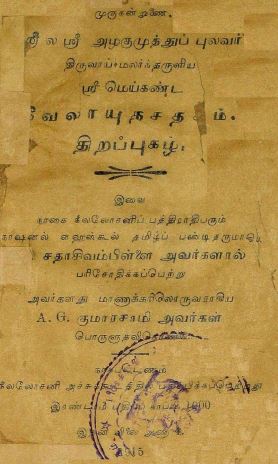 முருகன்றுணே.
ஸ்ரீ ல ஸ்ரீ அழகுமுத்துப் புலவர்
திருவாய்மலர்ந்தருளிய
ஸ்ரீ மெய்கண்ட
வேலாயுதசதகம்.
திறப்புகழ்.
இவை
நாகை நீலலோசனிப் பத்திராதிபரும்
நாஷனல் ஹைஸ்கூல் தமிழ்ப் பண்டிதருமாகிய
சதாசிவம்பிள்ளை அவர்களால்
பரிசோதிக்கப்பெற்று
அவர்களது மாணக்கரிலொருவராகிய
A. G. குமாரசாமி அவர்கள்
பொருளுதவி
நாகபட்டணம்
நீலலோசனி அச்சுக்கூடத்தில் பதிப்பிக்கப்பெற்றது
இரண்டாம் பதிப்பு காபி 1000
இதன் விலை அணா
1915